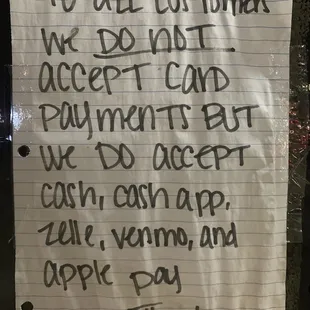 TO ALL CUSTOMERS
WE DO NOT
ACCEPT CARD
PAYMENTS BUT
WE DO ACCEPT
cash, cash app,
zelle, venmo, and
apple pay